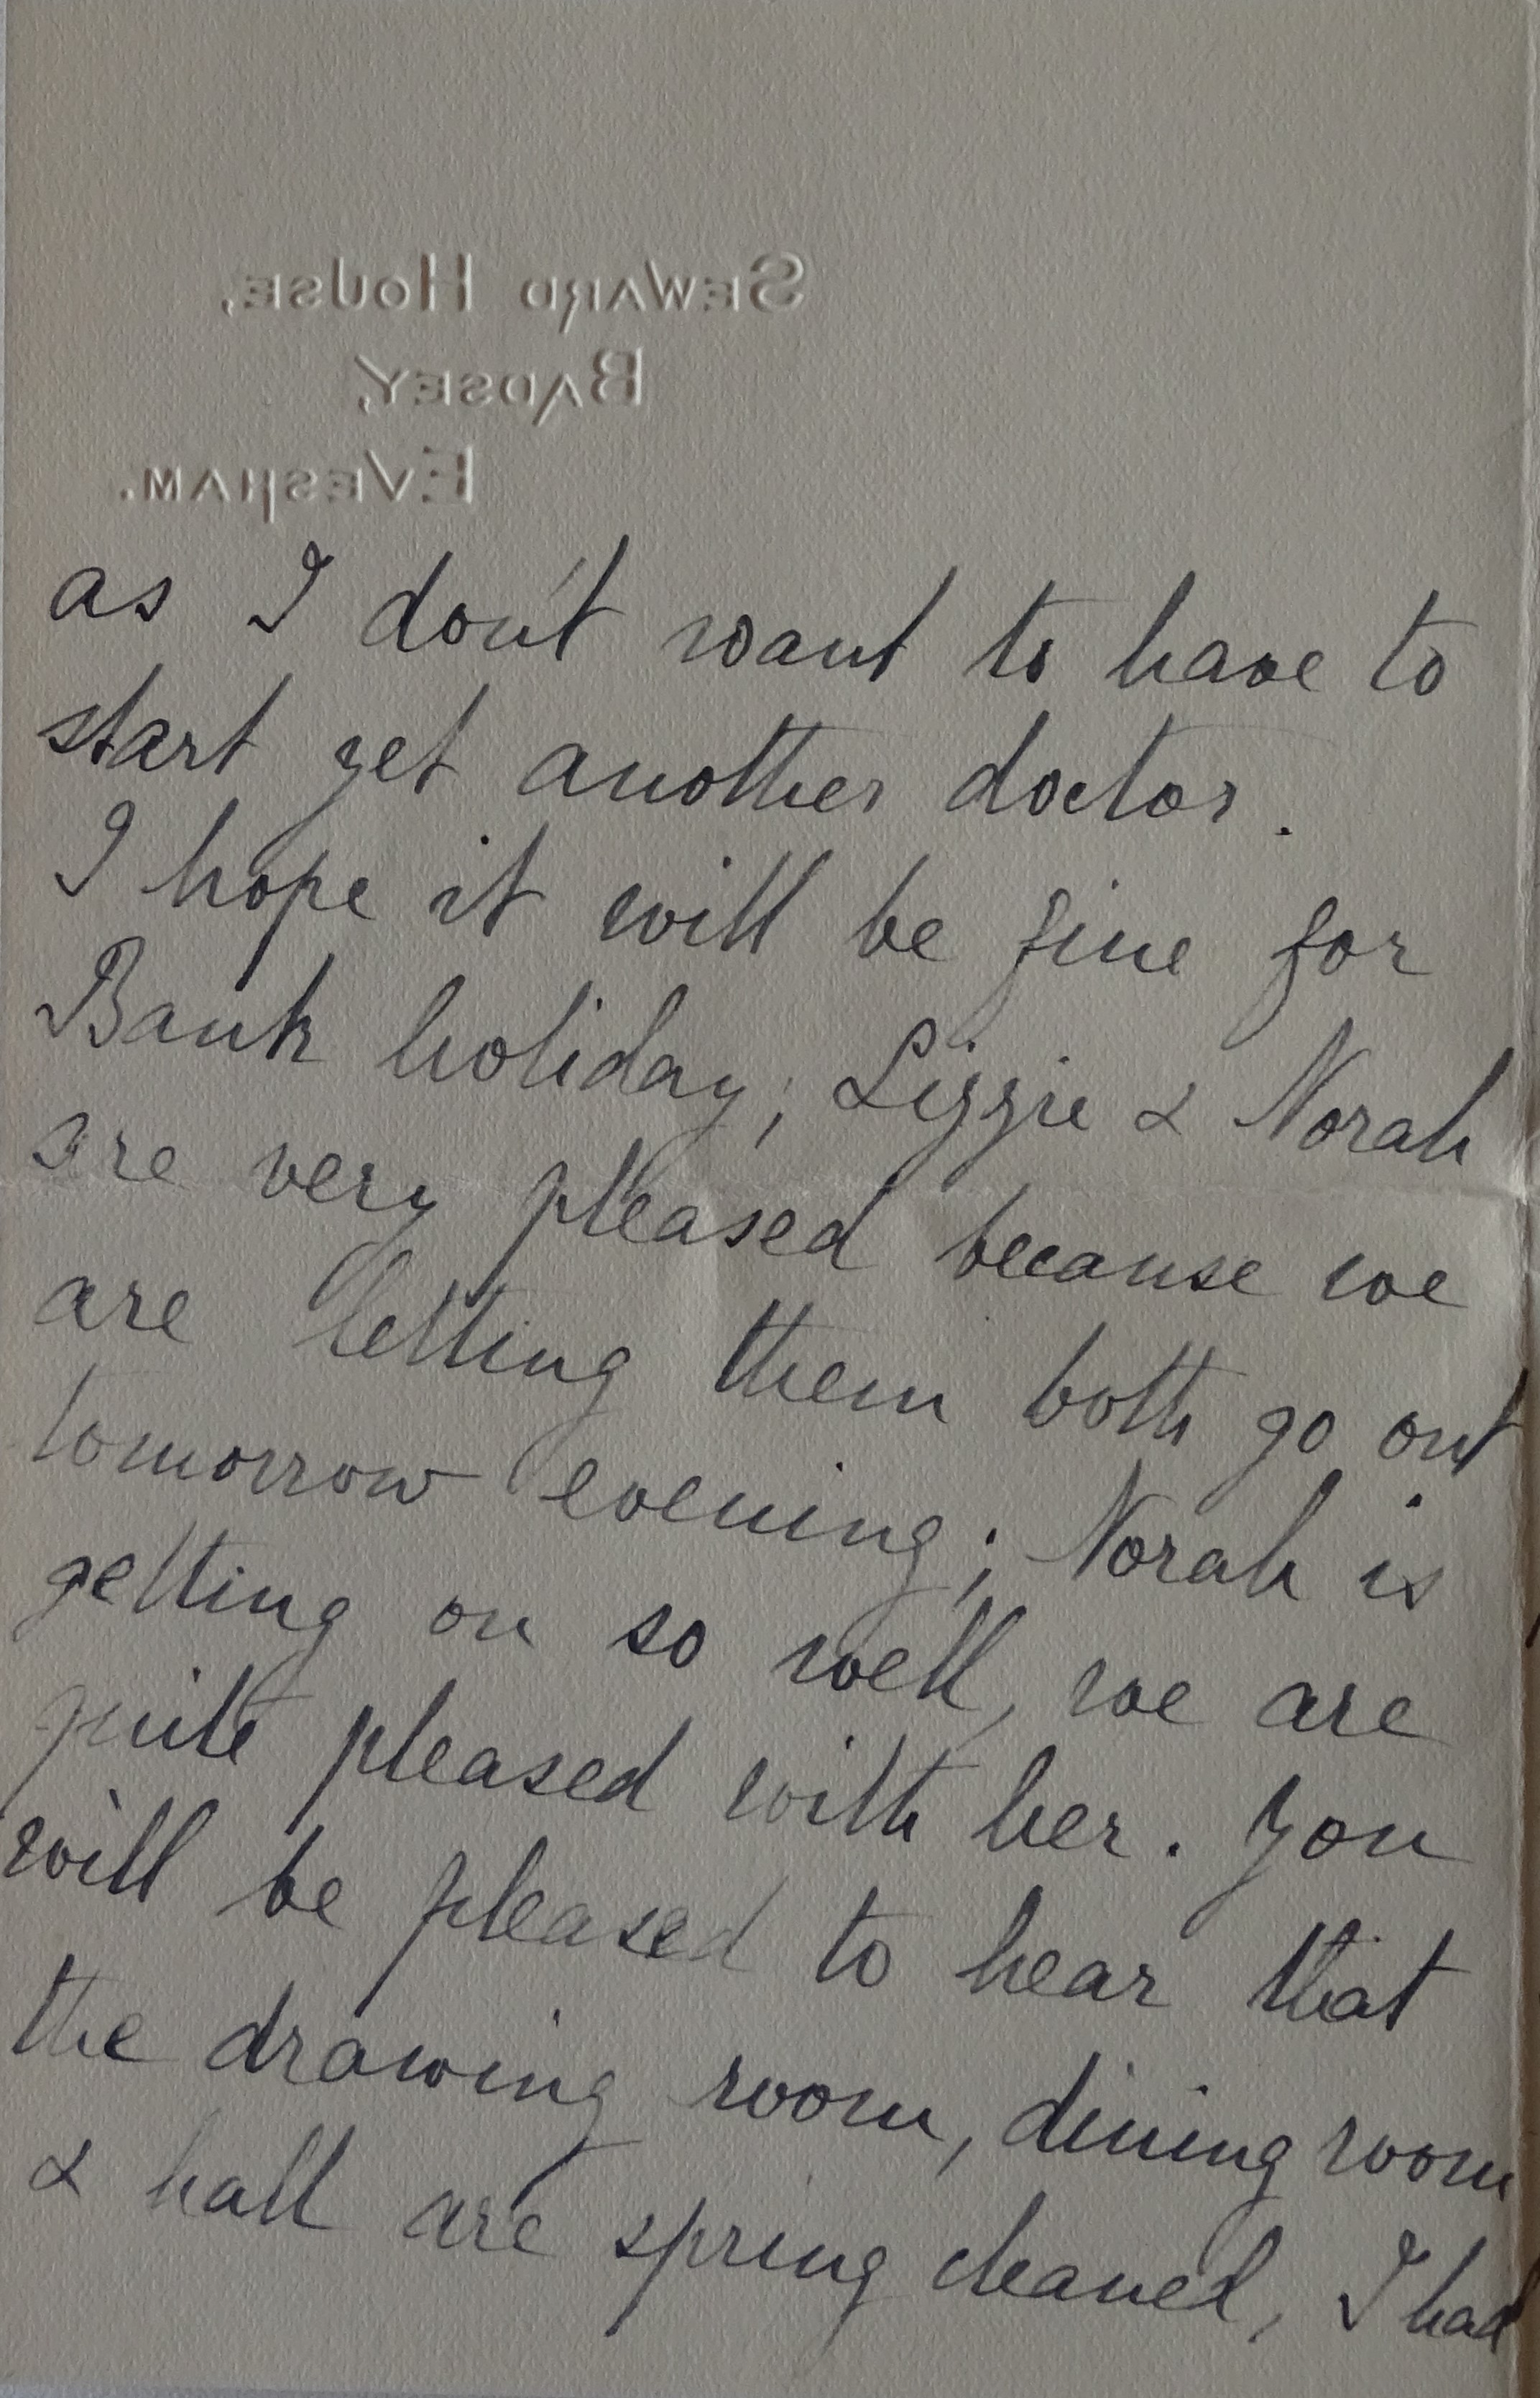 SEWARD HOUSE,
BADSEY,
EVESHAM.
as I don't want to have to
start yet another doctor.
I hope it will be fine for
Bank holiday; Lizzie & Norah
are very pleased because we
are letting them both go out
tomorrow evening; Norah is
getting on so well, we are
quite pleased with her. You
will be pleased to hear that
the drawing room, dining room
& hall are spring cleaned, I had